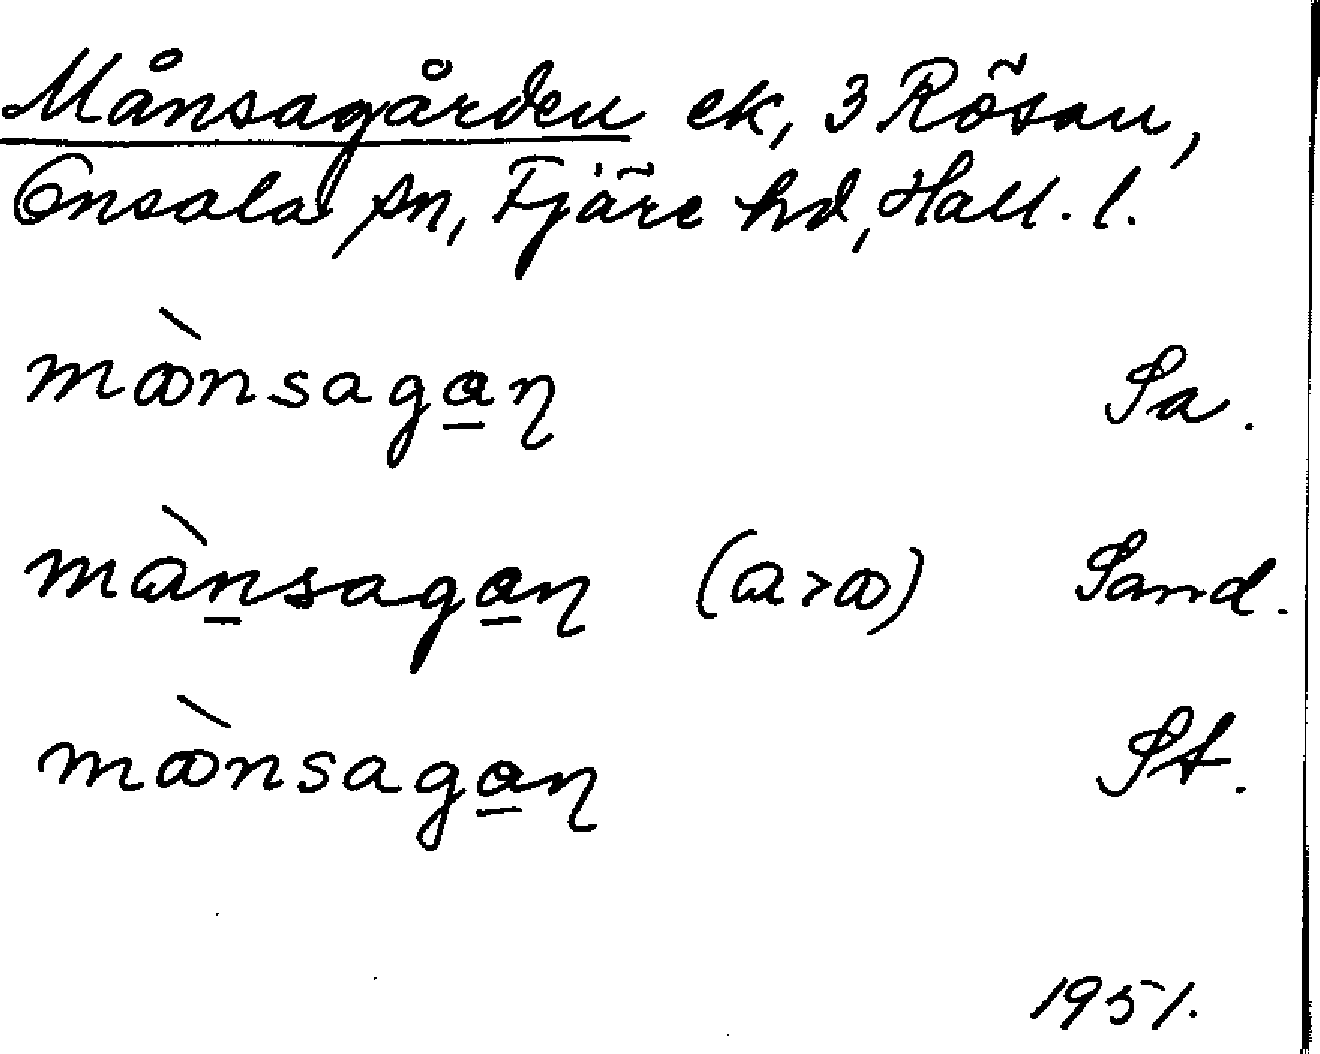 Månsagården ek, 3 Rösan,
Onsala sn, Fjäre hd, Hall. l.
mònsagan̡ Sa.
mànsagan̡ (a>ꭃ) Sand.
mònsagan̡ St.
1951.